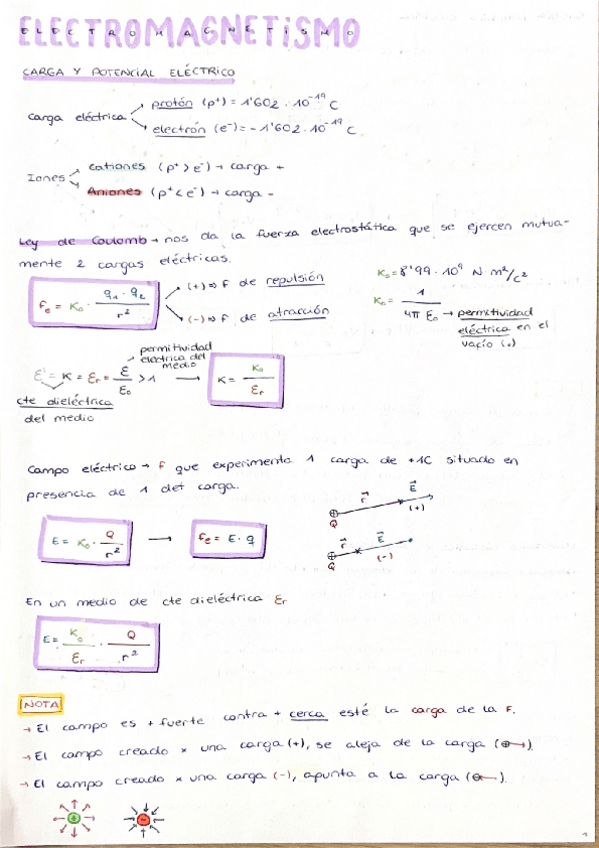 ELECTROMAGNETISMO
CARGA Y POTENCIAL ELÉCTRICO
Carga eléctrica
protón (p⁺) = 1'602 · 10⁻¹⁹ C
electrón (e⁻) = -1'602 · 10⁻¹⁹ C
Iones
Cationes (p⁺ > e⁻) → carga +
Aniones (p⁺ < e⁻) → carga -
Ley de Coulomb → nos da la fuerza electrostática que se ejercen mutua-
mente 2 cargas eléctricas.
Fe = K₀ · q₁ · q₂ / r²
(+) ⇒ F de repulsión
(-) ⇒ F de atracción
K₀ = 8'99 · 10⁹ N · m²/C²
K₀ = 1 / 4π ε₀ → permitividad
eléctrica en el
vacío (₀)
permitividad
eléctrica del
medio
ε' = K = εr = ε / ε₀ > 1 → K = K₀ / εr
cte dieléctrica
del medio
Campo eléctrico → F que experimenta 1 carga de +1C situado en
presencia de 1 det carga.
E = K₀ · Q / r² → Fe = E · q
Q r E (+)
Q r E (-)
En un medio de cte dieléctrica εr
E = K₀ / εr · Q / r²
NOTA
→ El campo es + fuerte contra + cerca esté la carga de la F.
→ El campo creado x una carga (+), se aleja de la carga (⊕→).
→ El campo creado x una carga (-), apunta a la carga (⊖←).